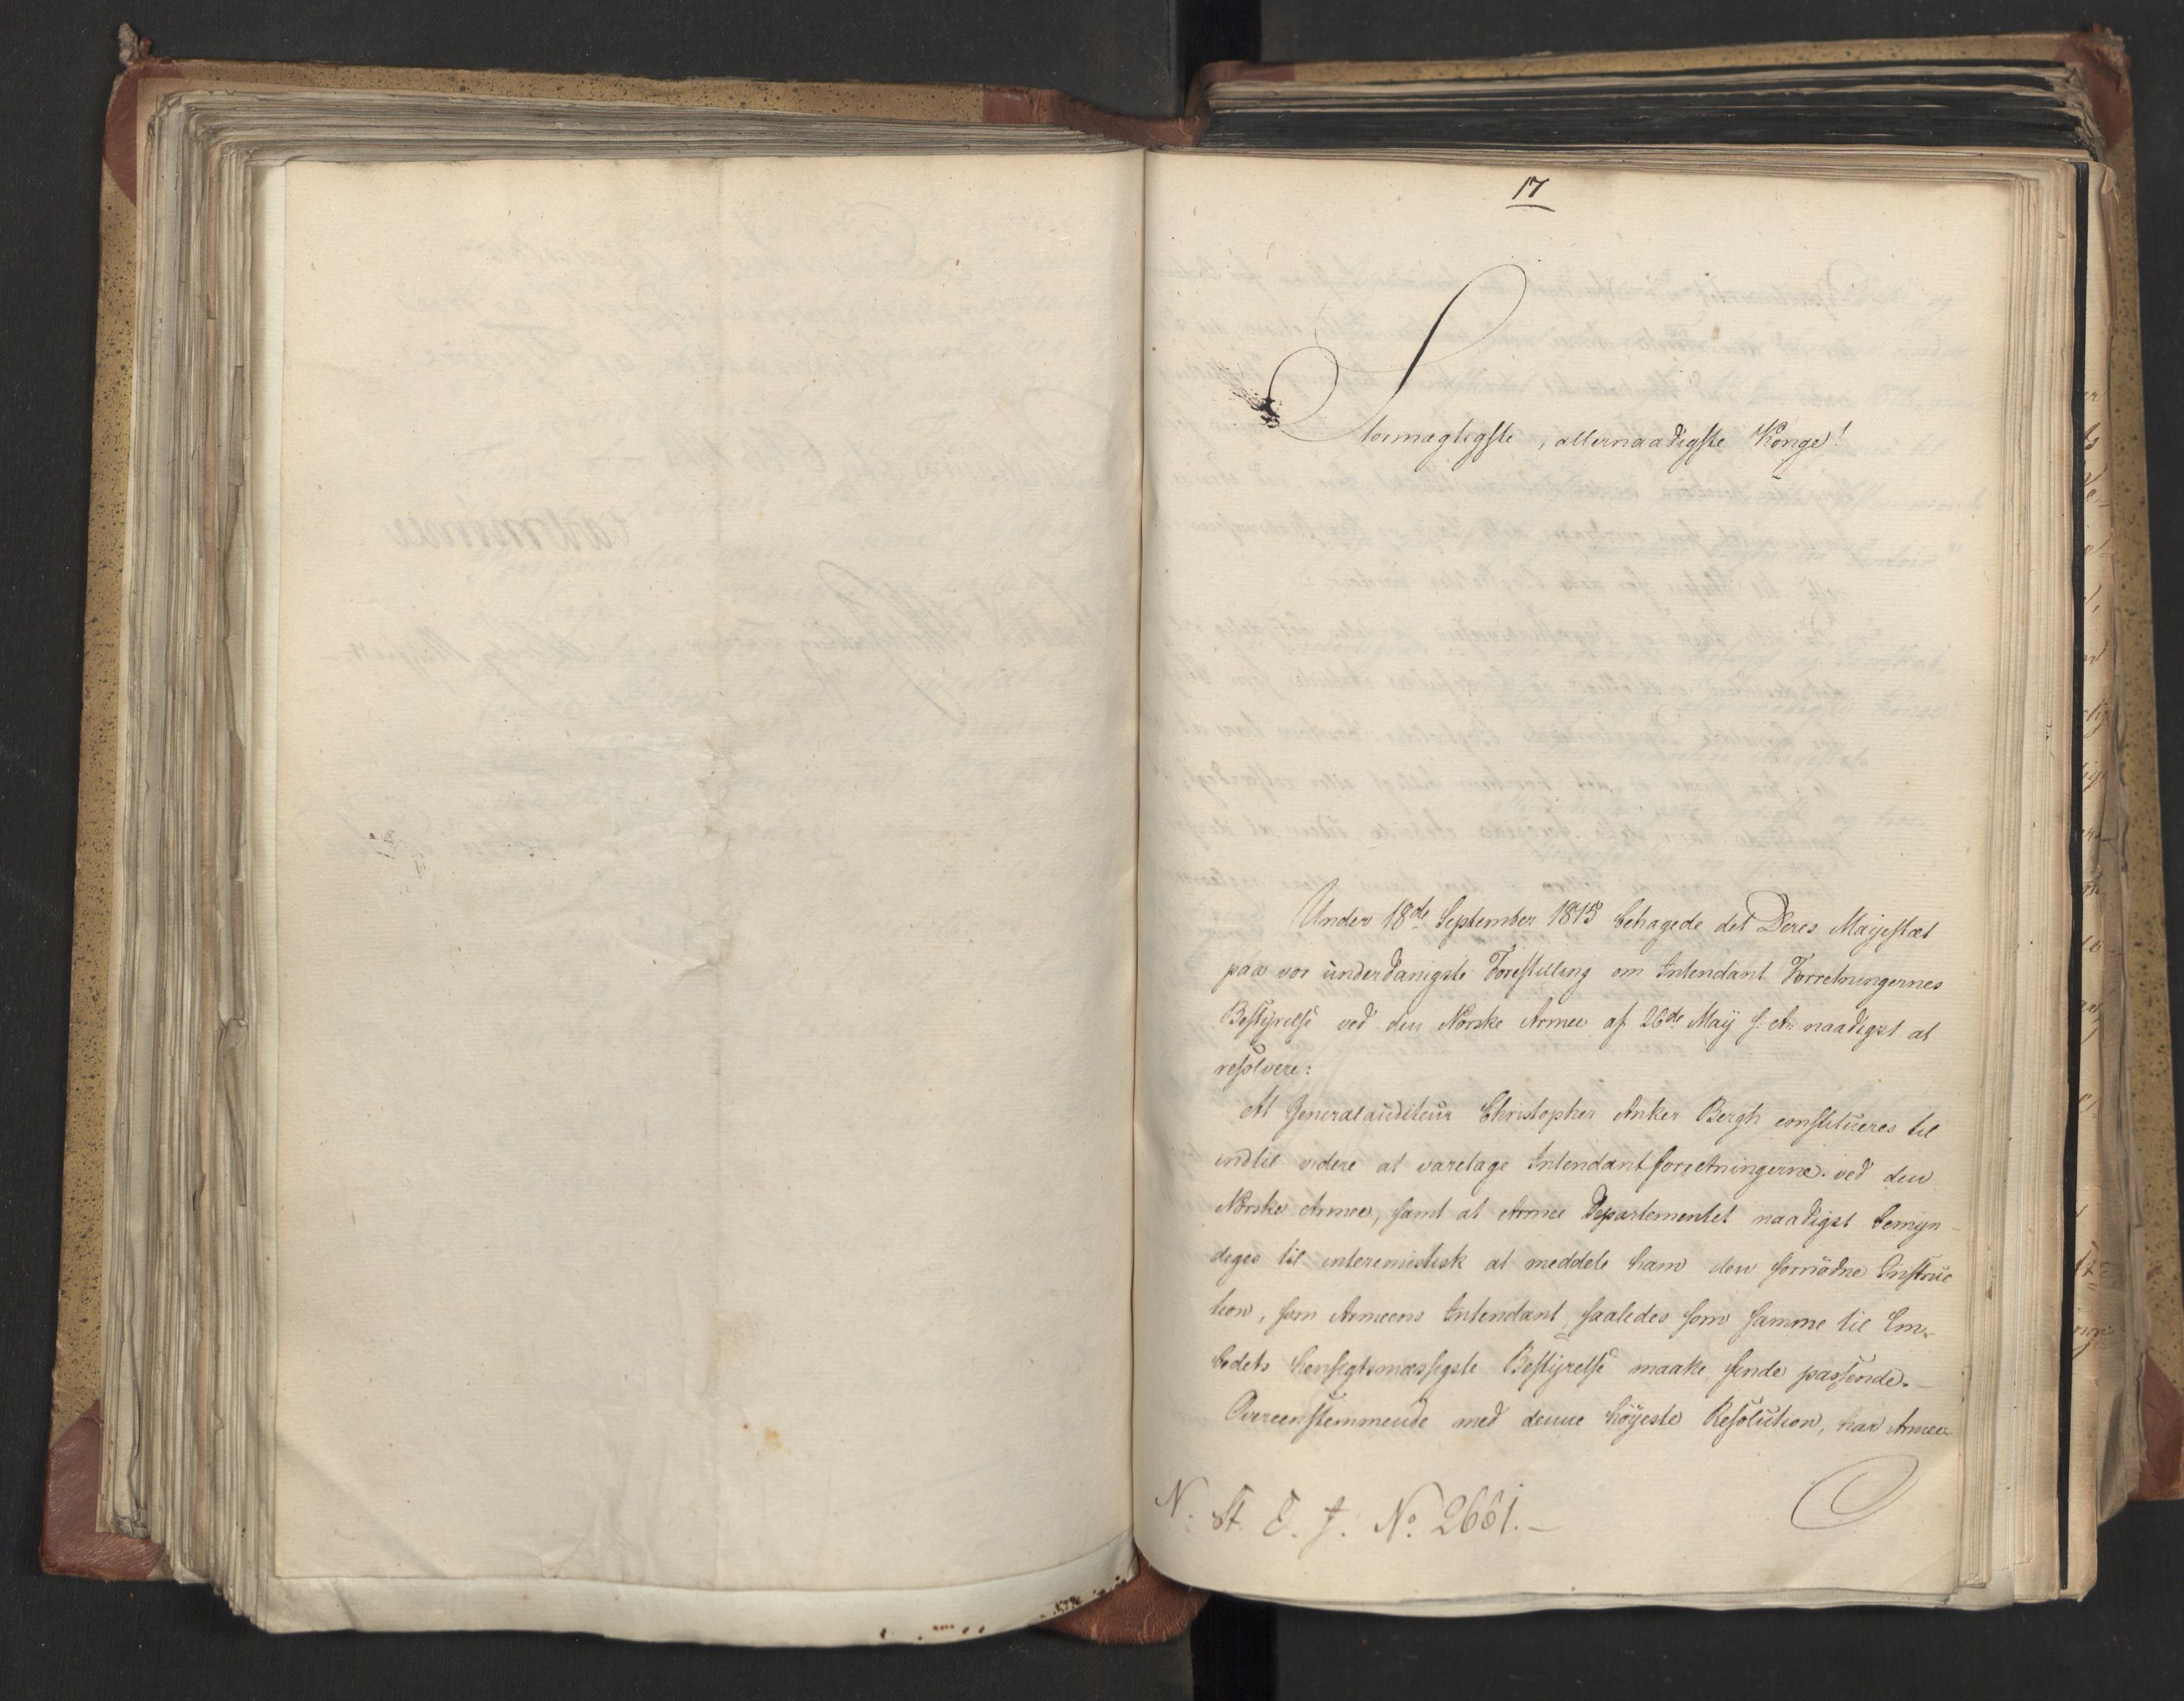 17
Stormægtigste, allernaadigste Konge!
Under 18de September 1815 behagede det Deres Majestæt
paa vor underdanigste Forestilling om Intendant Forretningernes
Bestyrelse ved den Norske Armee af 26de May s: A: naadigst at
resolvere:
At Generalauditeur Christopher Anker Bergh constitueres til
indtil videre at varetage Intendantforretningerne ved den
Norske Armee, samt at Armee Departementet naadigst bemyn-
diges til interemistisk at meddele ham den fornødne Instruc
tion, som Armeens Intendant, saaledes som samme til Em-
bedets hensigtsmæssigste Bestyrelse maatte finde passende.—
Overeenstemmende med denne høyeste Resolution, har Armee
N. St. S. J. No. 2661.—